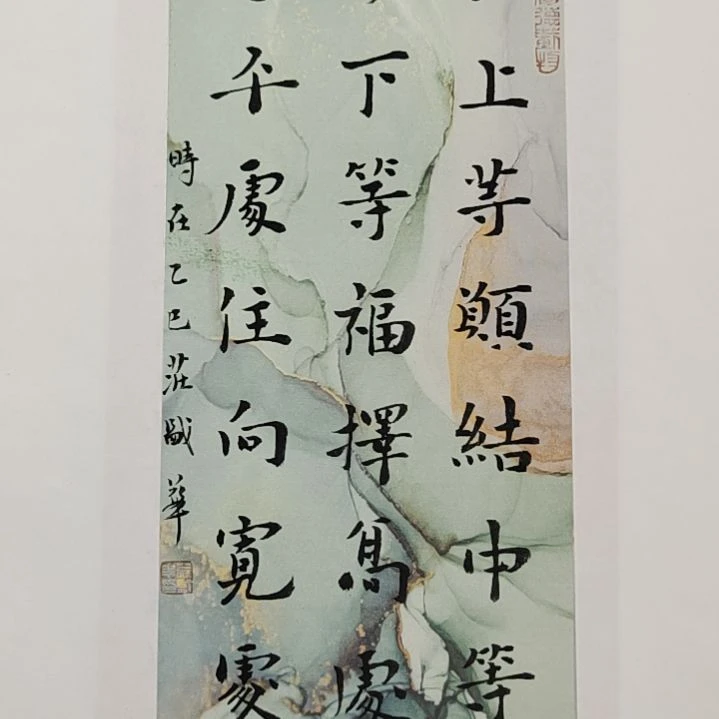 上等願結中等
下等福擇高處
平處住向寬處
時在乙巳莊華